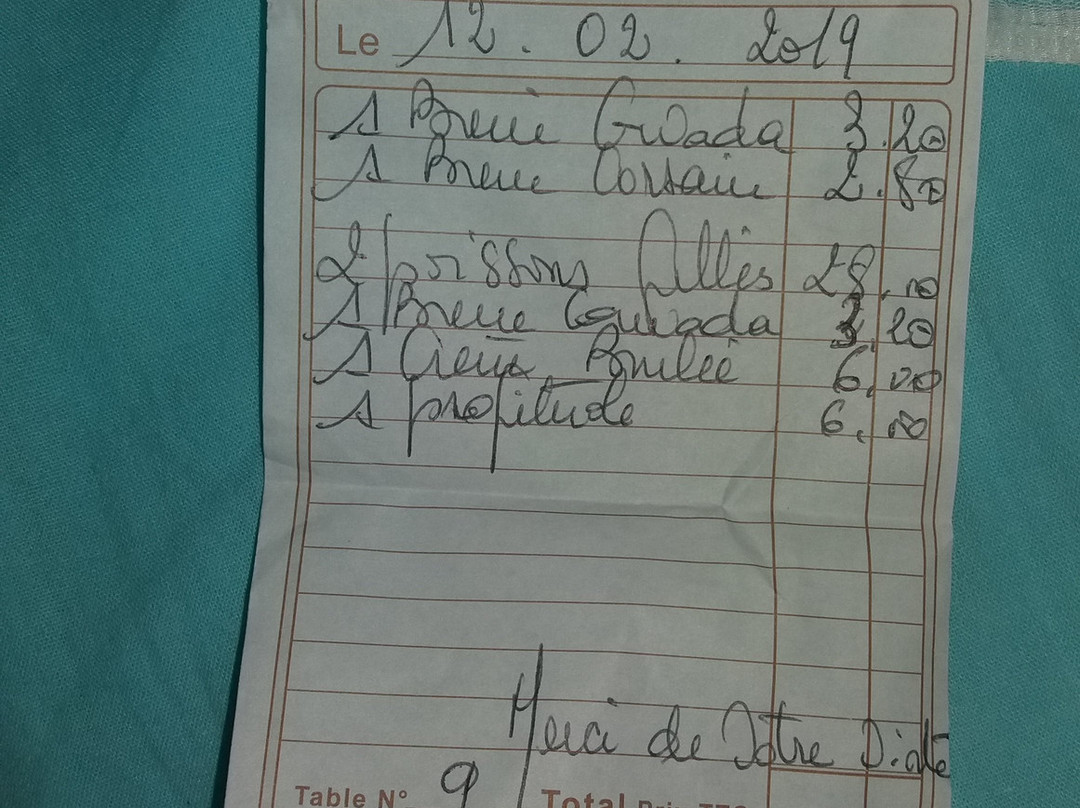 Le 12. 02. 2019
1 Bieue Gwada 3.20
1 Bieue Corsaire 2.80
2 poissons Gllés 28.00
1 Bieue Gouwada 3.20
1 Creme Brulee 6.00
1 profitude 6.00
Merci de Votre
Table N° 9 Total